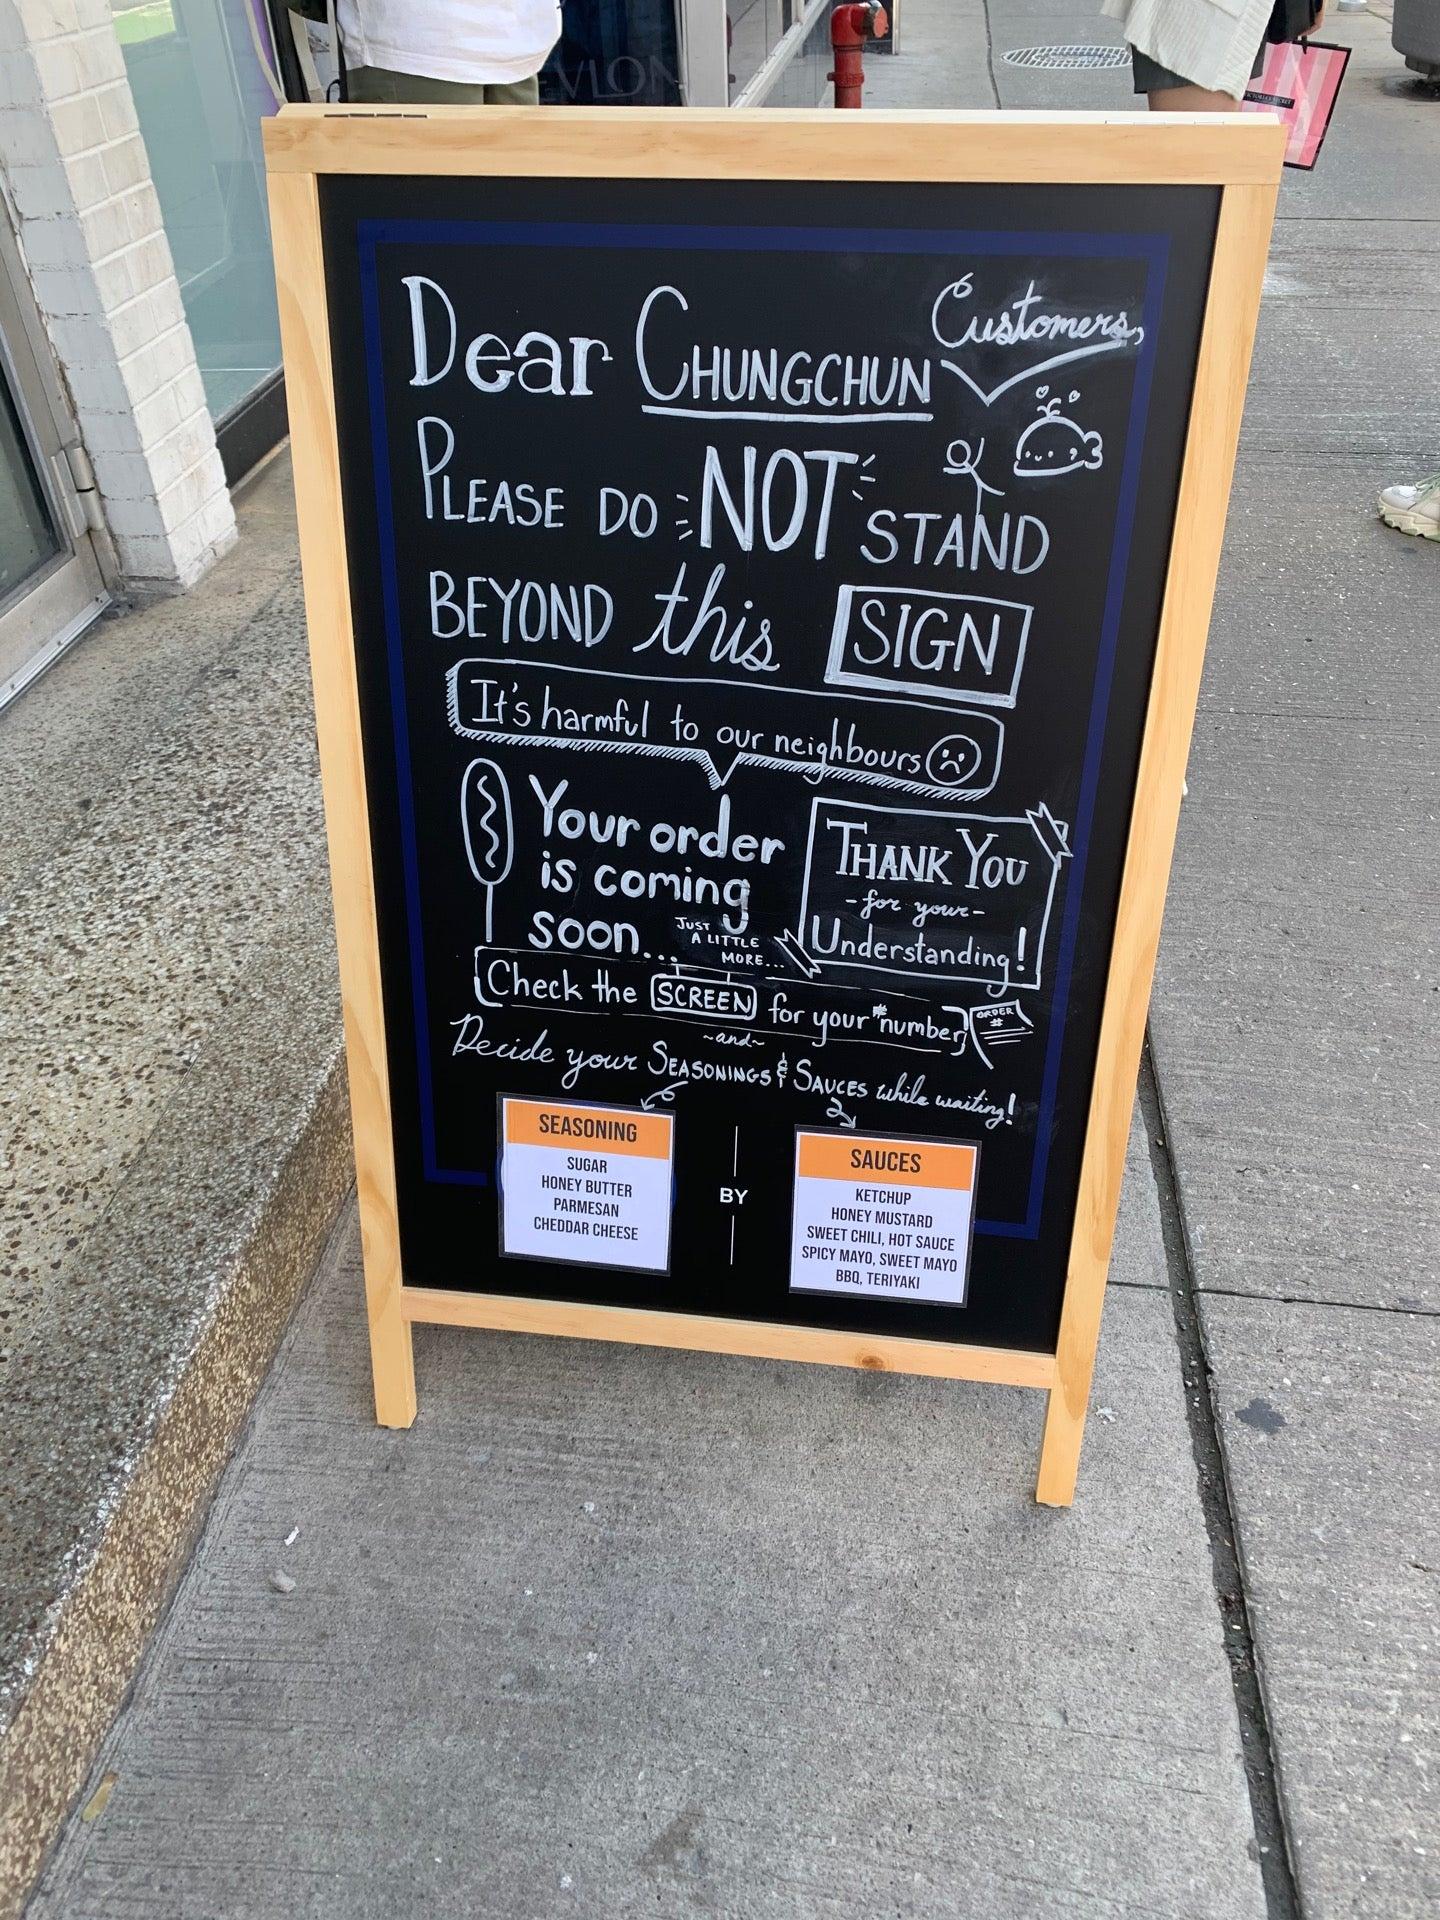 VLON
VICTORIA'S SECRET
Dear CHUNGCHUN Customers,
PLEASE DO NOT STAND
BEYOND this SIGN
It's harmful to our neighbours
Your order
is coming
soon...
JUST
A LITTLE
MORE...
THANK YOU
-for your-
Understanding!
Check the SCREEN for your #number
ORDER
#
~and~
Decide your SEASONINGS & SAUCES while waiting!
SEASONING
SUGAR
HONEY BUTTER
PARMESAN
CHEDDAR CHEESE
BY
SAUCES
KETCHUP
HONEY MUSTARD
SWEET CHILI, HOT SAUCE
SPICY MAYO, SWEET MAYO
BBQ, TERIYAKI